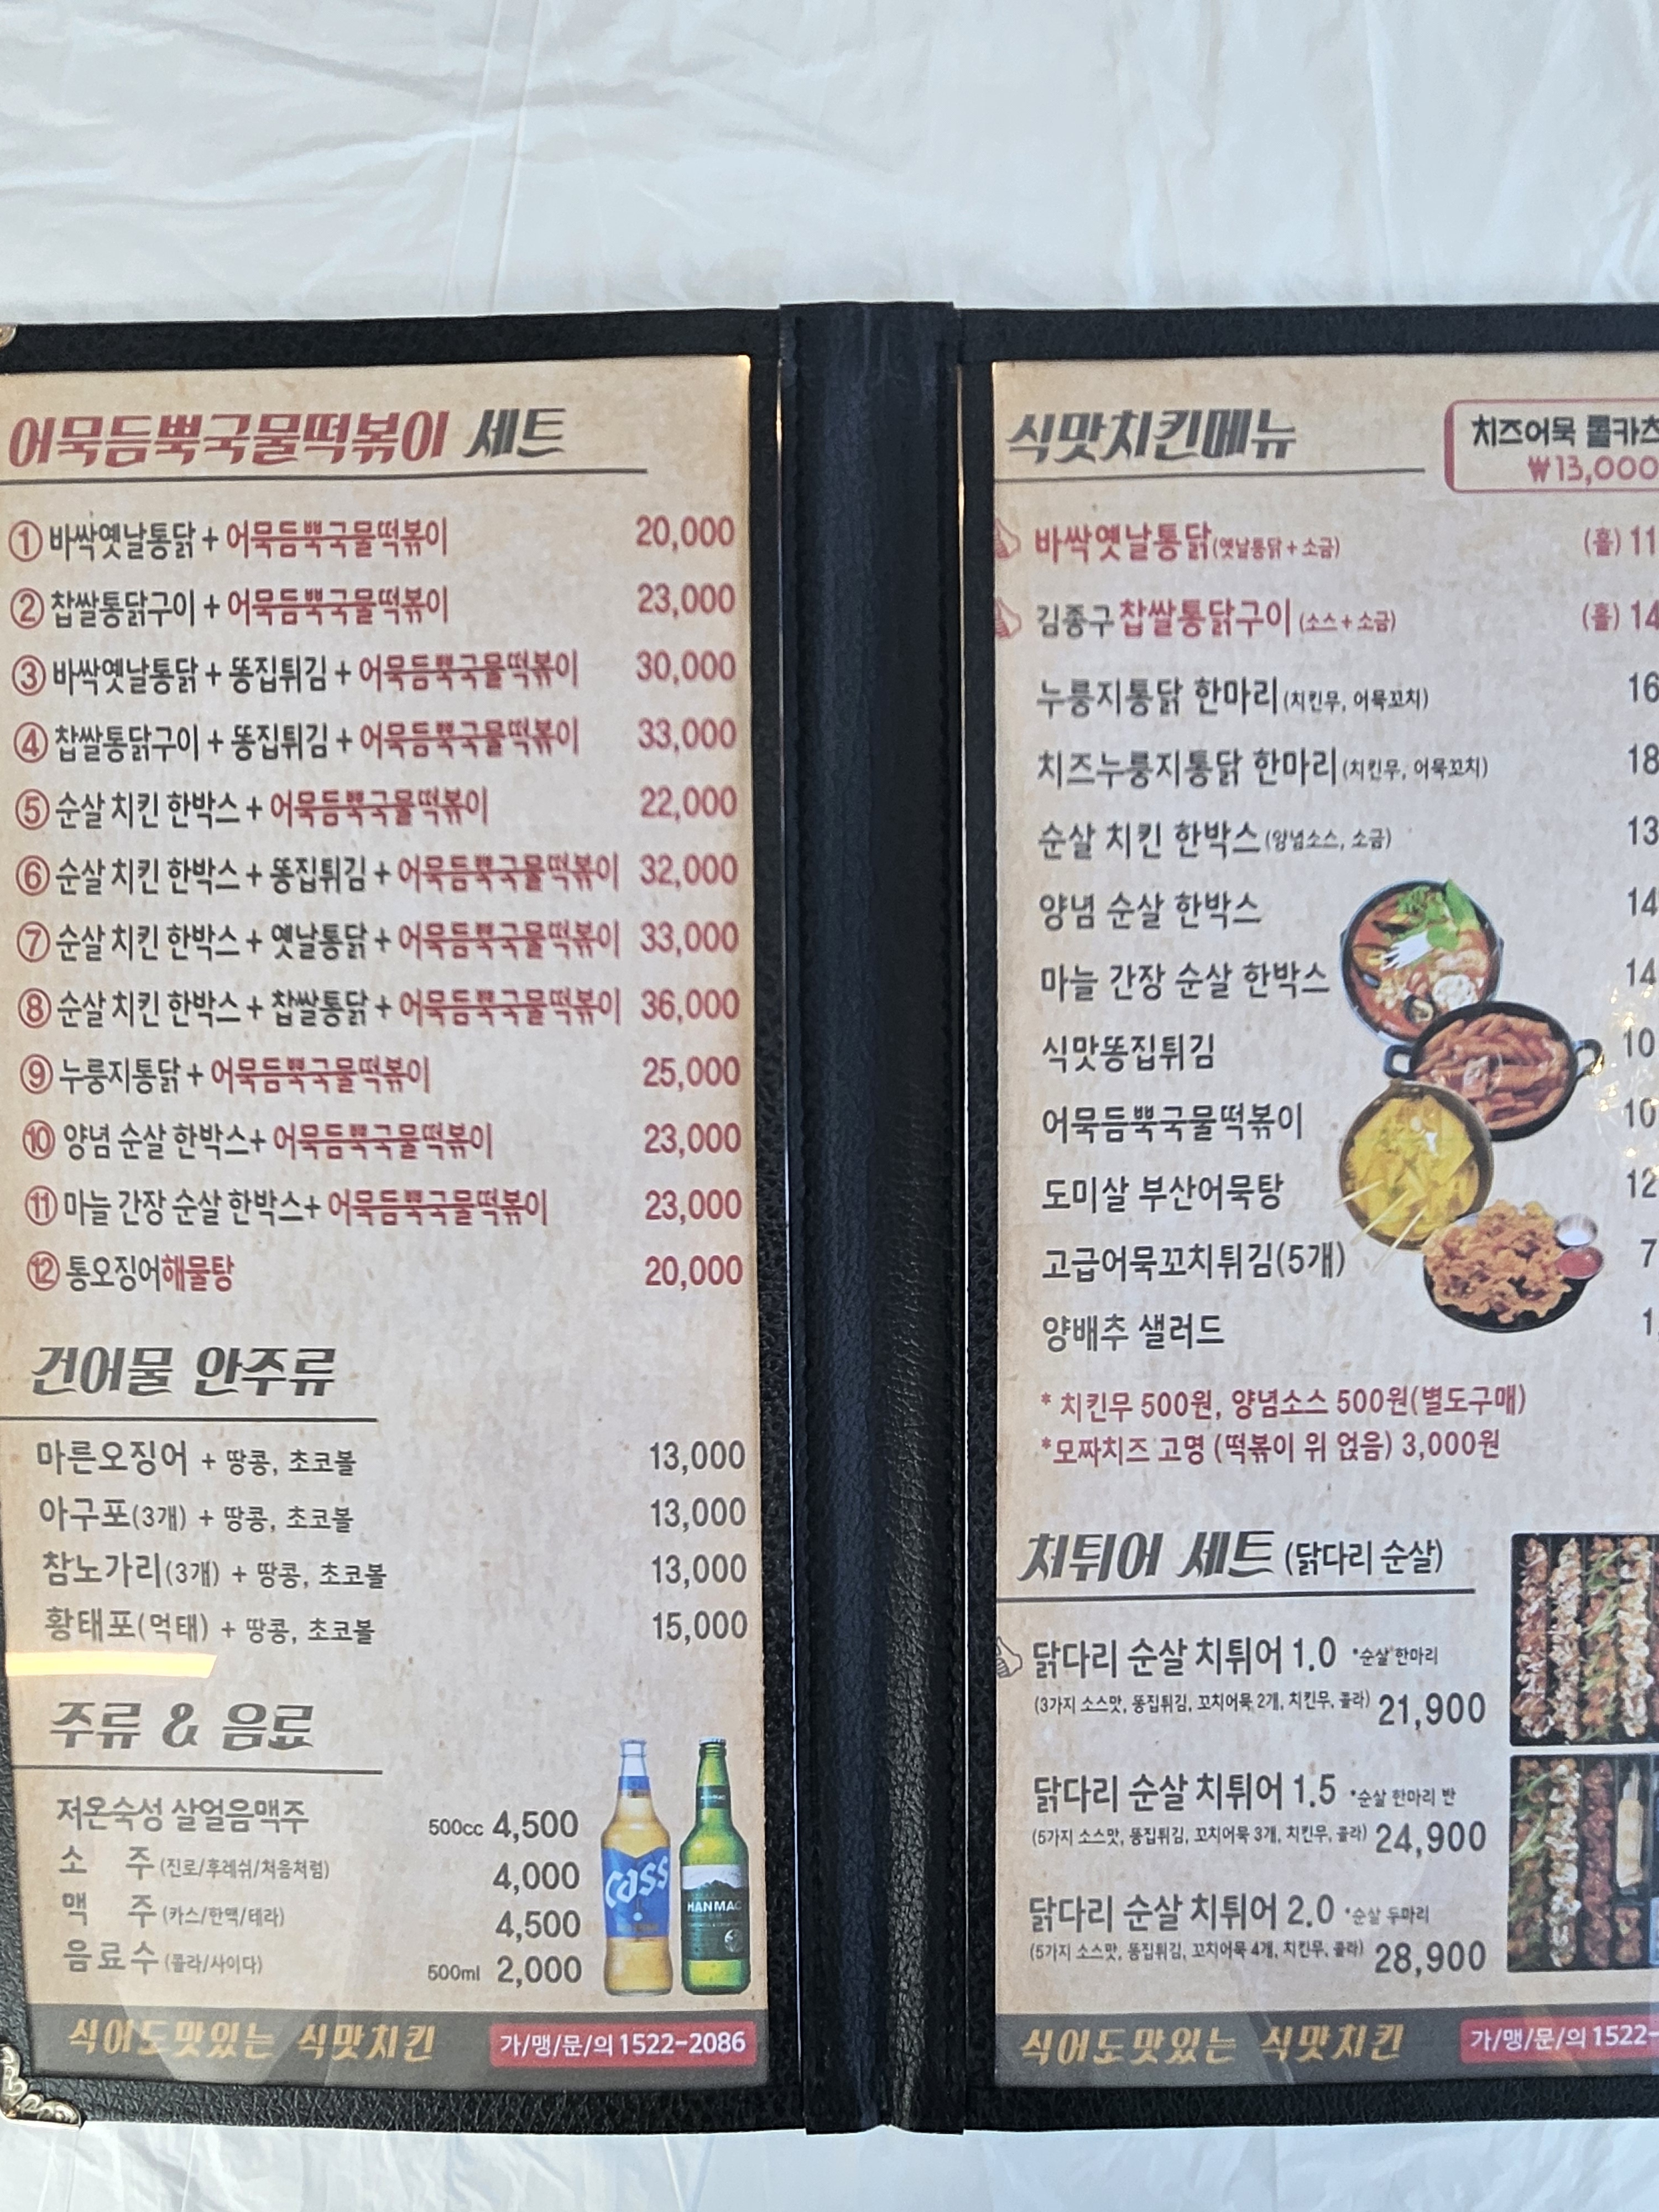 어묵듬뿍국물떡볶이 세트
① 바싹옛날통닭 + 어묵듬뿍국물떡볶이 20,000
② 찹쌀통닭구이 + 어묵듬뿍국물떡볶이 23,000
③ 바싹옛날통닭 + 똥집튀김 + 어묵듬뿍국물떡볶이 30,000
④ 찹쌀통닭구이 + 똥집튀김 + 어묵듬뿍국물떡볶이 33,000
⑤ 순살 치킨 한박스 + 어묵듬뿍국물떡볶이 22,000
⑥ 순살 치킨 한박스 + 똥집튀김 + 어묵듬뿍국물떡볶이 32,000
⑦ 순살 치킨 한박스 + 옛날통닭 + 어묵듬뿍국물떡볶이 33,000
⑧ 순살 치킨 한박스 + 찹쌀통닭 + 어묵듬뿍국물떡볶이 36,000
⑨ 누룽지통닭 + 어묵듬뿍국물떡볶이 25,000
⑩ 양념 순살 한박스+ 어묵듬뿍국물떡볶이 23,000
⑪ 마늘 간장 순살 한박스+ 어묵듬뿍국물떡볶이 23,000
⑫ 통오징어해물탕 20,000
건어물 안주류
마른오징어 + 땅콩, 초코볼 13,000
아구포(3개) + 땅콩, 초코볼 13,000
참노가리(3개) + 땅콩, 초코볼 13,000
황태포(먹태) + 땅콩, 초코볼 15,000
주류 & 음료
저온숙성 살얼음맥주 500cc 4,500
소 주 (진로/후레쉬/처음처럼) 4,000
맥 주 (카스/한맥/테라) 4,500
음료수 (콜라/사이다) 500ml 2,000
Cass
HANMAC
식어도맛있는 식맛치킨 가/맹/문/의 1522-2086
식맛치킨메뉴
치즈어묵 롤카츠
₩13,000
바싹옛날통닭(옛날통닭 + 소금) (홀) 11
김종구 찹쌀통닭구이 (소스 + 소금) (홀) 14
누룽지통닭 한마리 (치킨무, 어묵꼬치) 16
치즈누룽지통닭 한마리 (치킨무, 어묵꼬치) 18
순살 치킨 한박스 (양념소스, 소금) 13
양념 순살 한박스 14
마늘 간장 순살 한박스 14
식맛똥집튀김 10
어묵듬뿍국물떡볶이 10
도미살 부산어묵탕 12
고급어묵꼬치튀김(5개) 7
양배추 샐러드 1,
* 치킨무 500원, 양념소스 500원(별도구매)
*모짜치즈 고명 (떡볶이 위 얹음) 3,000원
처튀어 세트 (닭다리 순살)
닭다리 순살 치튀어 1.0 *순살 한마리
(3가지 소스맛, 똥집튀김, 꼬치어묵 2개, 치킨무, 콜라) 21,900
닭다리 순살 치튀어 1.5 *순살 한마리 반
(5가지 소스맛, 똥집튀김, 꼬치어묵 3개, 치킨무, 콜라) 24,900
닭다리 순살 치튀어 2.0 *순살 두마리
(5가지 소스맛, 똥집튀김, 꼬치어묵 4개, 치킨무, 콜라) 28,900
식어도맛있는 식맛치킨 가/맹/문/의 1522-